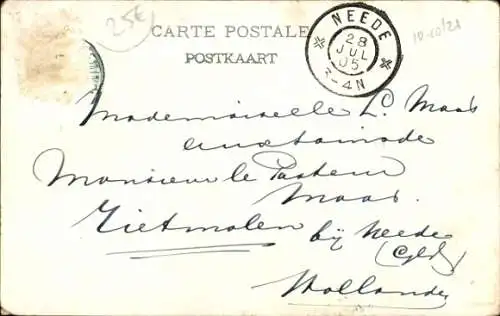 25€
CARTE POSTALE
POSTKAART
NEEDE
28
JUL
05
3-4N
10-10/21
Mademoiselle L. Maas
aux soins de
Monsieur le Pasteur
Maas
Rietmolen bij Neede
(Gld)
Hollande